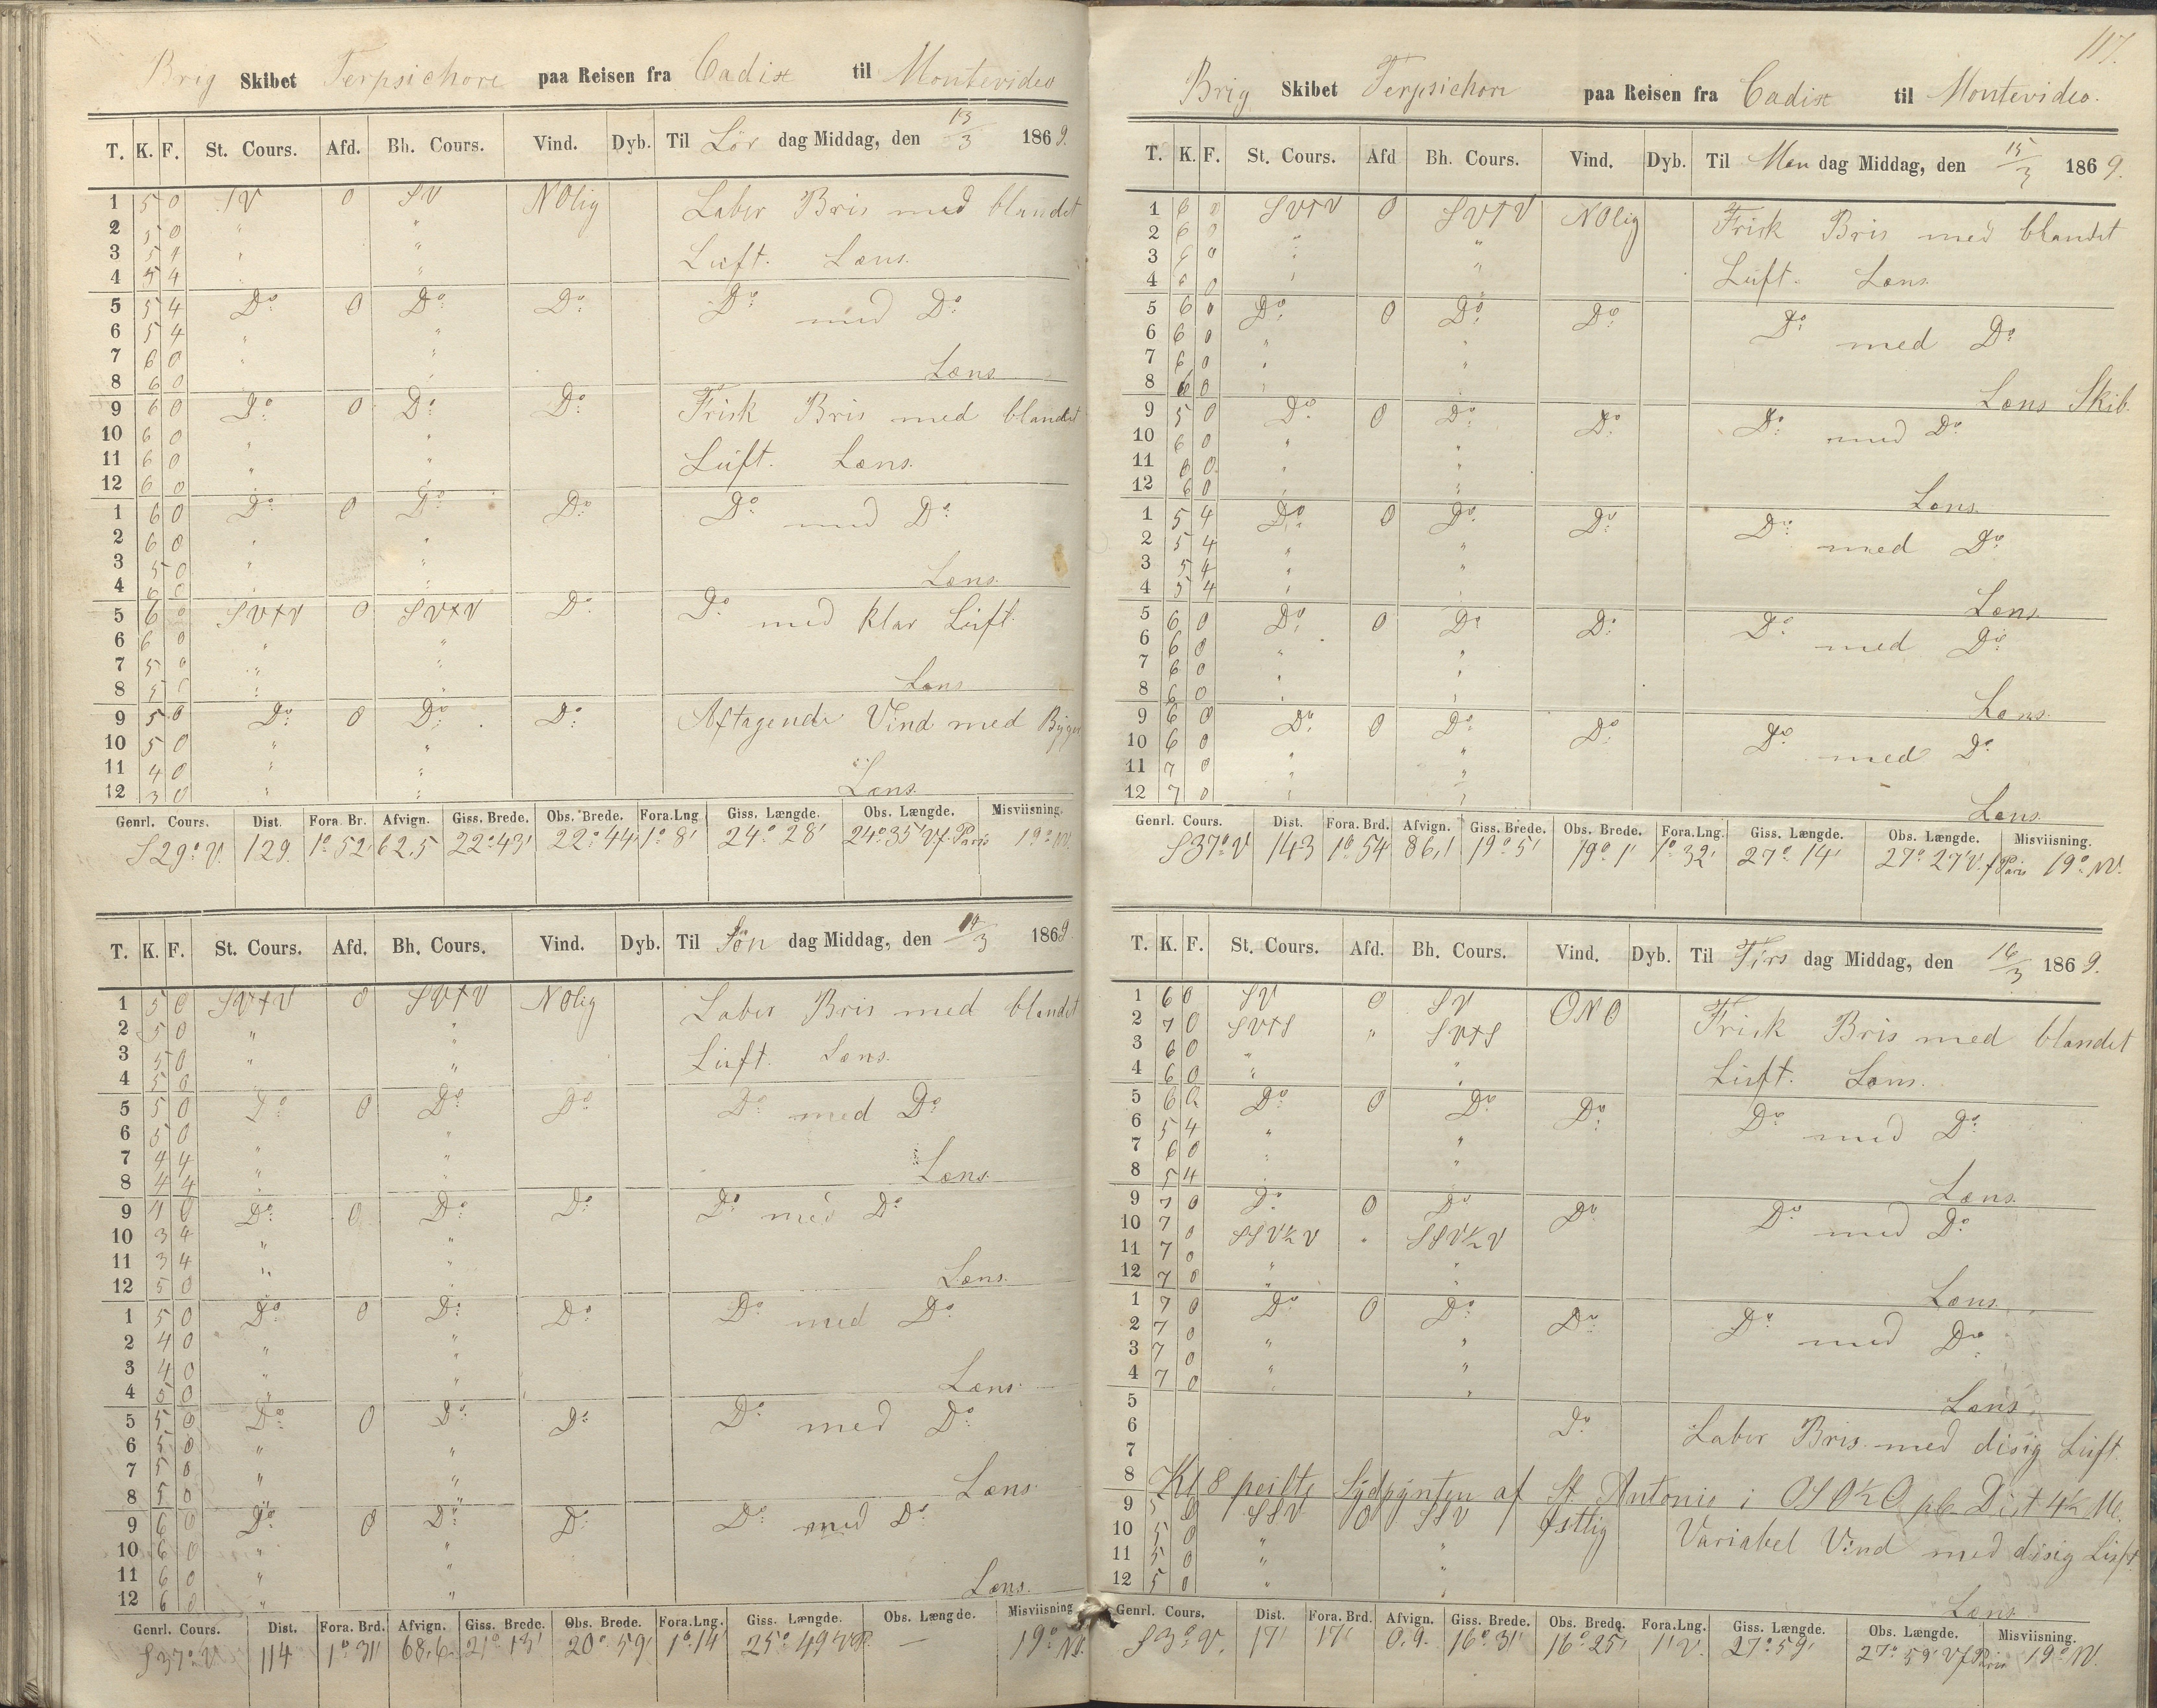 Brig Skibet Terpsichore paa Reisen fra Cadix til Montevideo
T. K. F. St. Cours. Afd. Bh. Cours. Vind. Dyb. Til Lör dag Middag, den 13/3 1869.
1 5 0 SV 0 SV NOlig Laber Bris med blandet
2 5 0 " "
3 5 4 " " Luft. Læns.
4 5 4 "
5 5 4 Do: 0 Do: Do: Do: med Do:
6 5 4 " "
7 6 0 " "
8 6 0 Læns
9 6 0 Do: 0 Do: Do: Frisk Bris med blandet
10 6 0 " "
11 6 0 " " Luft. Læns.
12 6 0 " "
1 6 0 Do: 0 Do: Do: Do: med Do:
2 6 0 " "
3 5 0 " "
4 6 0 " Læns.
5 6 0 SVtV 0 SVtV Do: Do: med klar Luft.
6 6 0 " "
7 5 0 " "
8 5 " " Læns
9 5 0 Do: 0 Do: Do: Aftagende Vind med Byger
10 5 0 " "
11 4 0 " "
12 3 0 " " Læns.
Genrl. Cours. Dist. Fora. Br. Afvign. Giss. Brede. Obs. Brede. Fora.Lng Giss. Længde. Obs. Længde. Misviisning.
S 29° V. 129. 1° 52' 62.5 22° 43' 22° 44' 1° 8' 24° 28' 24° 35' V.f. Paris 19° NV.
T. K. F. St. Cours. Afd. Bh. Cours. Vind. Dyb. Til Søn dag Middag, den 14/3 1869
1 5 0 SVtV 0 SVtV NOlig Laber Bris med blandet
2 5 0 " "
3 5 0 " " Luft. Læns.
4 5 0 "
5 5 0 Do: 0 Do: Do: Do: med Do:
6 5 0 " "
7 4 4 " "
8 4 4 " " Læns.
9 4 0 Do: 0 Do: Do: Do: med Do:
10 3 4 " "
11 3 4 " "
12 5 0 " Læns.
1 5 0 Do: 0 Do: Do: Do: med Do:
2 4 0 " "
3 4 0 " "
4 5 0 " Læns.
5 5 0 Do: 0 Do: Do: Do: med Do:
6 5 0 " "
7 5 0 " "
8 5 0 " " Læns.
9 6 0 Do: 0 Do: Do: Do: med Do:
10 6 0 " "
11 6 0 " "
12 6 0 " " Læns.
Genrl. Cours. Dist. Fora. Brd. Afvign. Giss. Brede. Obs. Brede. Fora.Lng. Giss. Længde. Obs. Længde. Misviisning
S 37° V. 114 1° 31' 68,6 21° 13' 20° 59' 1° 14' 25° 49' — 19° NV.
117.
Brig Skibet Terpsichore paa Reisen fra Cadix til Montevideo.
T. K. F. St. Cours. Afd Bh. Cours. Vind. Dyb. Til Man dag Middag, den 15/3 1869.
1 6 0 SVtV 0 SVtV NOlig Frisk Bris med blandet
2 6 0 " "
3 6 0 " " Luft. Læns
4 6 0 "
5 6 0 Do: 0 Do: Do: Do: med Do:
6 6 0 " "
7 6 0 " "
8 6 0 " Læns Skib.
9 5 0 Do: 0 Do: Do: Do: med Do:
10 6 0 " "
11 6 0 "
12 6 0 " " Læns.
1 5 4 Do: 0 Do: Do: Do: med Do:
2 5 4 " "
3 5 4 " "
4 5 4 " Læns.
5 6 0 Do: 0 Do: Do: Do: med Do:
6 6 0 " "
7 6 0 "
8 6 0 " " Læns.
9 6 0 Do: 0 Do: Do: Do: med Do:
10 6 0 " "
11 7 0 " "
12 7 0 " " Læns.
Genrl. Cours. Dist. Fora. Brd. Afvign. Giss. Brede. Obs. Brede. Fora.Lng. Giss. Længde. Obs. Længde. Misviisning.
S 37° V 143 1° 54' 86,1 19° 5' 19° 1' 1° 32' 27° 14' 27° 27' V. f Paris 19° NV.
T. K. F. St. Cours. Afd. Bh. Cours. Vind. Dyb. Til Tirs dag Middag, den 16/3 1869.
1 6 0 SV 0 SV ONO Frisk Bris med blandet
2 7 0 SVtS " SVtS
3 6 0 "
4 6 0 " " Luft. Læns.
5 6 Do: 0 Do: Do: Do: med Do:
6 5 4 " "
7 6 0 " "
8 5 4 " Læns.
9 7 0 Do: 0 Do: Do: Do: med Do:
10 7 0 SSV½V " SSV½V
11 7 0 " "
12 7 0 " " Læns.
1 7 0 Do: 0 Do: Do: Do: med Do:
2 7 0 " "
3 7 0 " "
4 7 0 " " Læns.
5
6 Do: Laber Bris med disig Luft.
7
8 Kl 8 peilte Sydpynten af St. Antonio i OSO½O pC. Dist 4½ M.
9 5 0 SSV 0 SSV Østlig Variabel Vind med disig Luft.
10 5 0 " "
11 5 0 " "
12 5 0 " Læns
Genrl. Cours. Dist. Fora. Brd. Afvign. Giss. Brede. Obs. Brede. Fora.Lng. Giss. Længde. Obs. Længde. Misviisning.
S 3° V. 17' 17' 0.9. 16° 31' 16° 25' 1' V. 27° 59' 27° 59' V f Paris 19° NV.